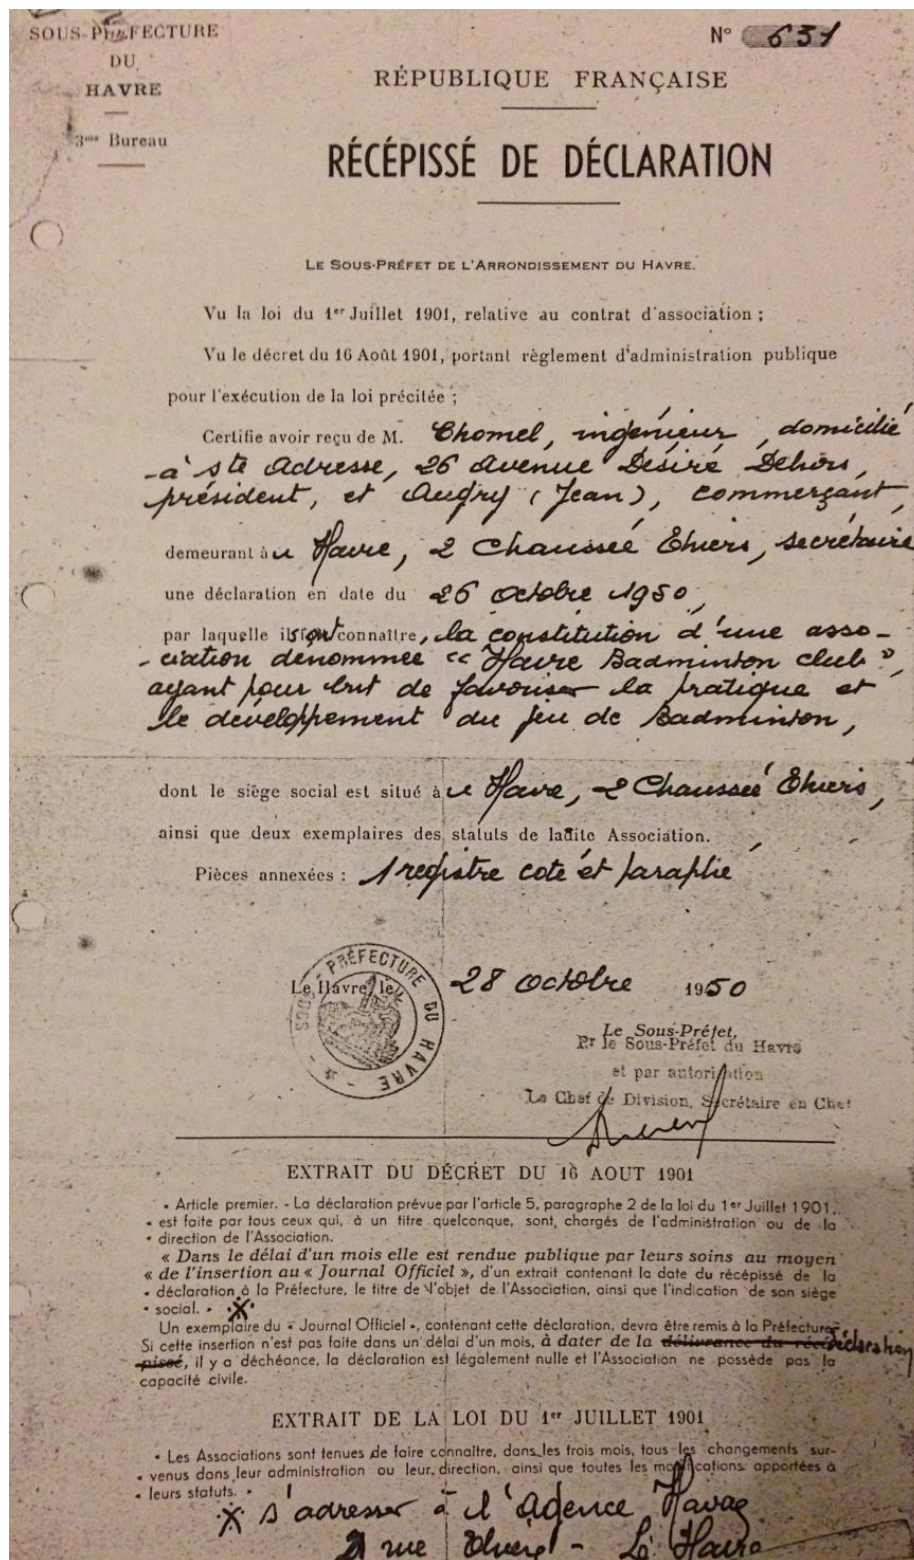 SOUS-PRÉFECTURE
DU
HAVRE
3me Bureau
N° 631
RÉPUBLIQUE FRANÇAISE
RÉCÉPISSÉ DE DÉCLARATION
LE SOUS-PRÉFET DE L'ARRONDISSEMENT DU HAVRE.
Vu la loi du 1er Juillet 1901, relative au contrat d'association ;
Vu le décret du 16 Août 1901, portant règlement d'administration publique
pour l'exécution de la loi précitée ;
Certifie avoir reçu de M. Chomel, ingénieur, domicilié
à Ste Adresse, 26 Avenue Désiré Dehors,
président, et Augry (Jean), commerçant,
demeurant au Havre, 2 Chaussée Thiers, secrétaire
une déclaration en date du 26 octobre 1950,
par laquelle ils font connaître, la constitution d'une asso-
-ciation dénommée « Havre Badminton club »,
ayant pour but de favoriser la pratique et
le développement du jeu de Badminton,
dont le siège social est situé au Havre, 2 Chaussée Thiers,
ainsi que deux exemplaires des statuts de ladite Association.
Pièces annexées : 1 registre coté et paraphé
SOUS-PRÉFECTURE DU HAVRE
Le Havre, le 28 octobre 1950
Le Sous-Préfet,
Pr le Sous-Préfet du Havre
et par autorisation
Le Chef de Division, Secrétaire en Chef
EXTRAIT DU DÉCRET DU 16 AOUT 1901
« Article premier. - La déclaration prévue par l'article 5, paragraphe 2 de la loi du 1er Juillet 1901.
« est faite par tous ceux qui, à un titre quelconque, sont, chargés de l'administration ou de la
« direction de l'Association.
« Dans le délai d'un mois elle est rendue publique par leurs soins au moyen
« de l'insertion au « Journal Officiel », d'un extrait contenant la date du récépissé de la
« déclaration à la Préfecture, le titre de l'objet de l'Association, ainsi que l'indication de son siège
« social. »
Un exemplaire du « Journal Officiel », contenant cette déclaration, devra être remis à la Préfecture.
Si cette insertion n'est pas faite dans un délai d'un mois, à dater de la délivrance du récé- déclaration
pissé, il y a déchéance, la déclaration est légalement nulle et l'Association ne possède pas la
capacité civile.
EXTRAIT DE LA LOI DU 1er JUILLET 1901
« Les Associations sont tenues de faire connaître, dans les trois mois, tous les changements sur-
« venus dans leur administration ou leur direction, ainsi que toutes les modifications apportées à
« leurs statuts. »
s'adresser à l'Agence Havas
rue Thiers - Le Havre